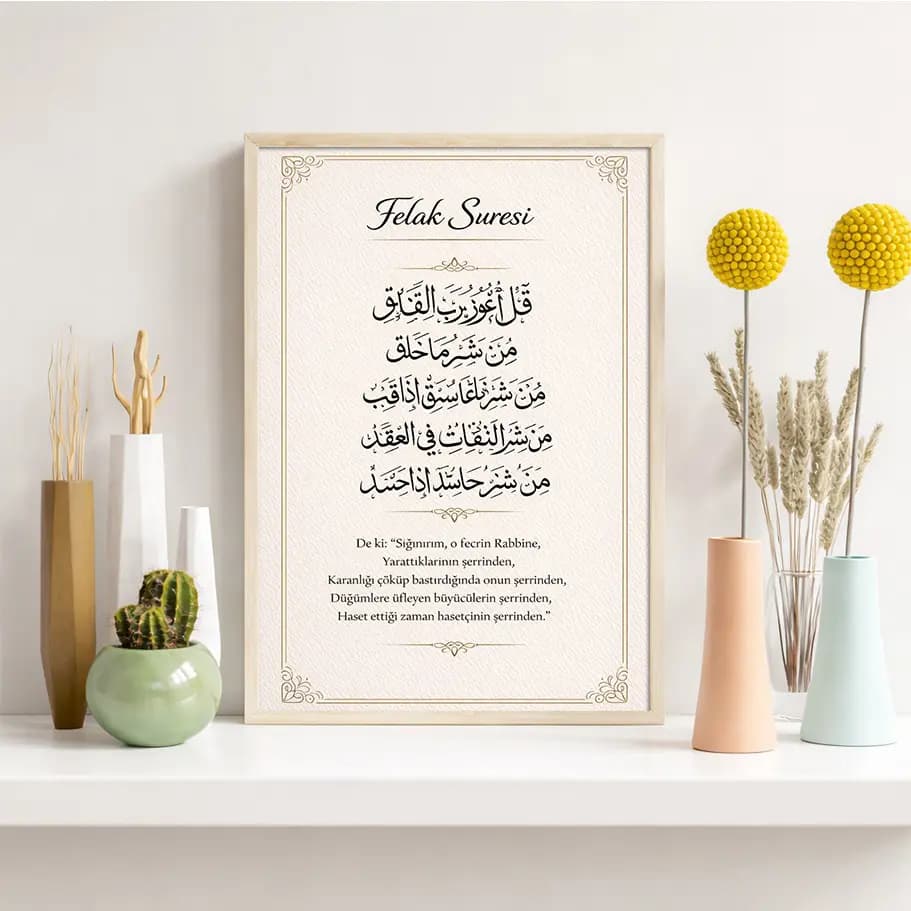 Felak Suresi
قَل أغُوزُ بُرَبَ
مُنَ شَرُ مَا خَلَق
مُنَ شَرُ إذَا قَبَ
مِنَ شَرَ النفِقَاتِ في العَقَدُ
مَنَ شَرُ حَاسَدَ إذَا حَسَدَ
De ki: “Sığınırım, o fecrin Rabbine,
Yarattıklarının şerrinden,
Karanlığı çöküp bastırdığında onun şerrinden,
Düğümlere üfleyen büyücülerin şerrinden,
Haset ettiği zaman hasetçinin şerrinden.”